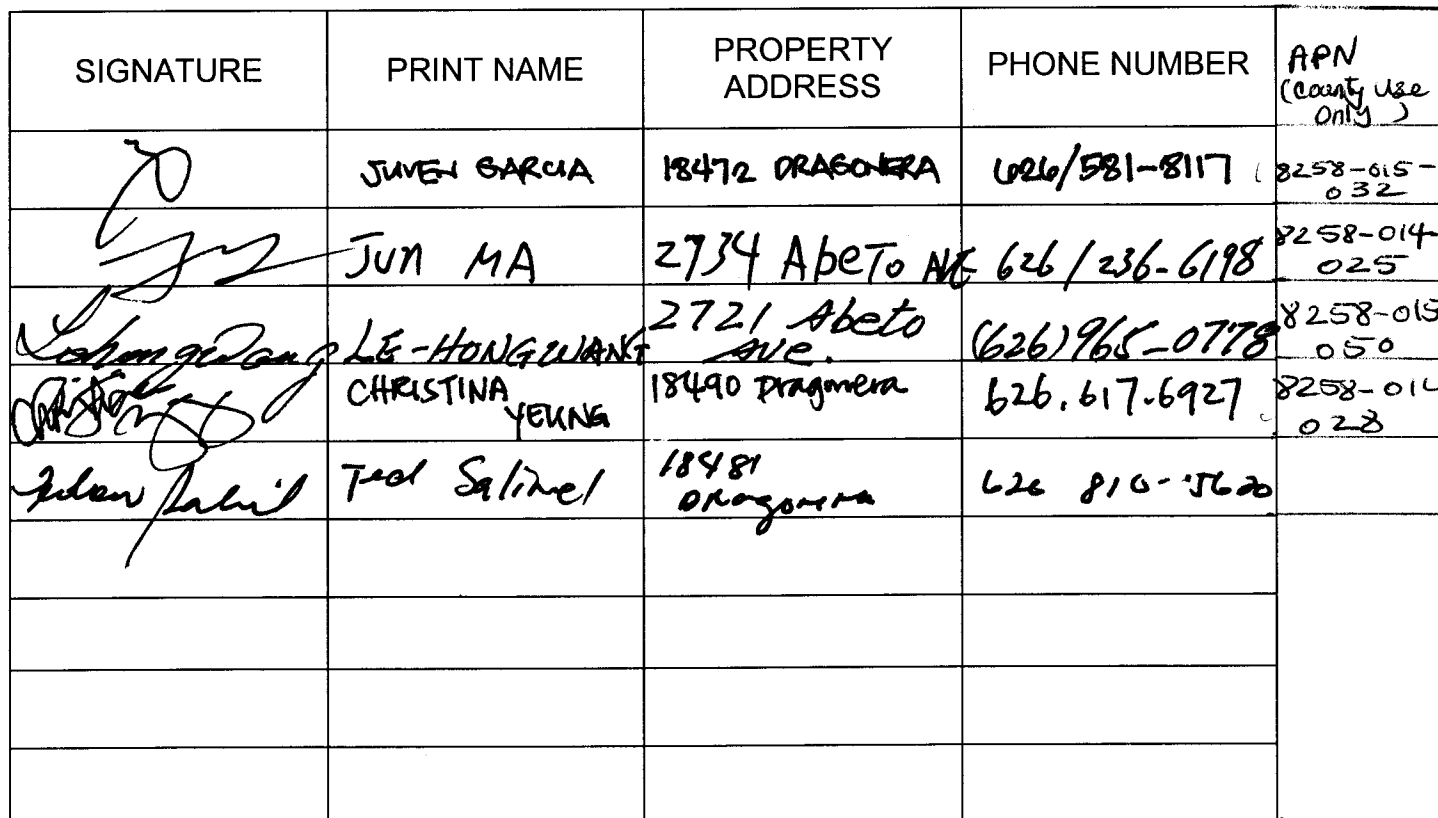 SIGNATURE PRINT NAME PROPERTY ADDRESS PHONE NUMBER APN (County Use Only)
JUVEN GARCIA 18472 DRAGONERA 626/581-8117 8258-015-032
JUN MA 2734 Abeto AVE 626/236-6198 8258-014-025
LE-HONG WANG 2721 Abeto Ave. (626)965-0778 8258-015 050
CHRISTINA YEUNG 18490 Dragonera 626.617.6927 8258-014 028
Ted 18481 Dragonera 626 810-5620